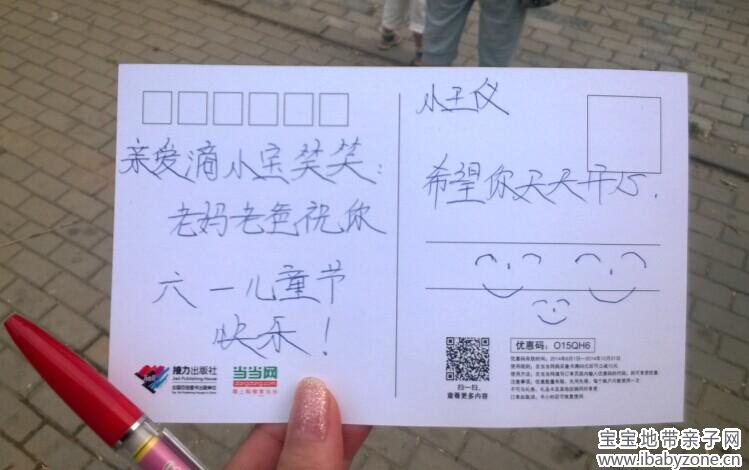 亲爱滴小宝笑笑:
老妈老爸祝你
六一儿童节
快乐!
接力出版社
Jieli Publishing House
当当网
dangdang.com
网上购物享当当
小王仪
希望你天天开心.
优惠码: O15QH6
扫一扫,
查看更多内容
宝宝地带亲子网
www.ibabyzone.cn